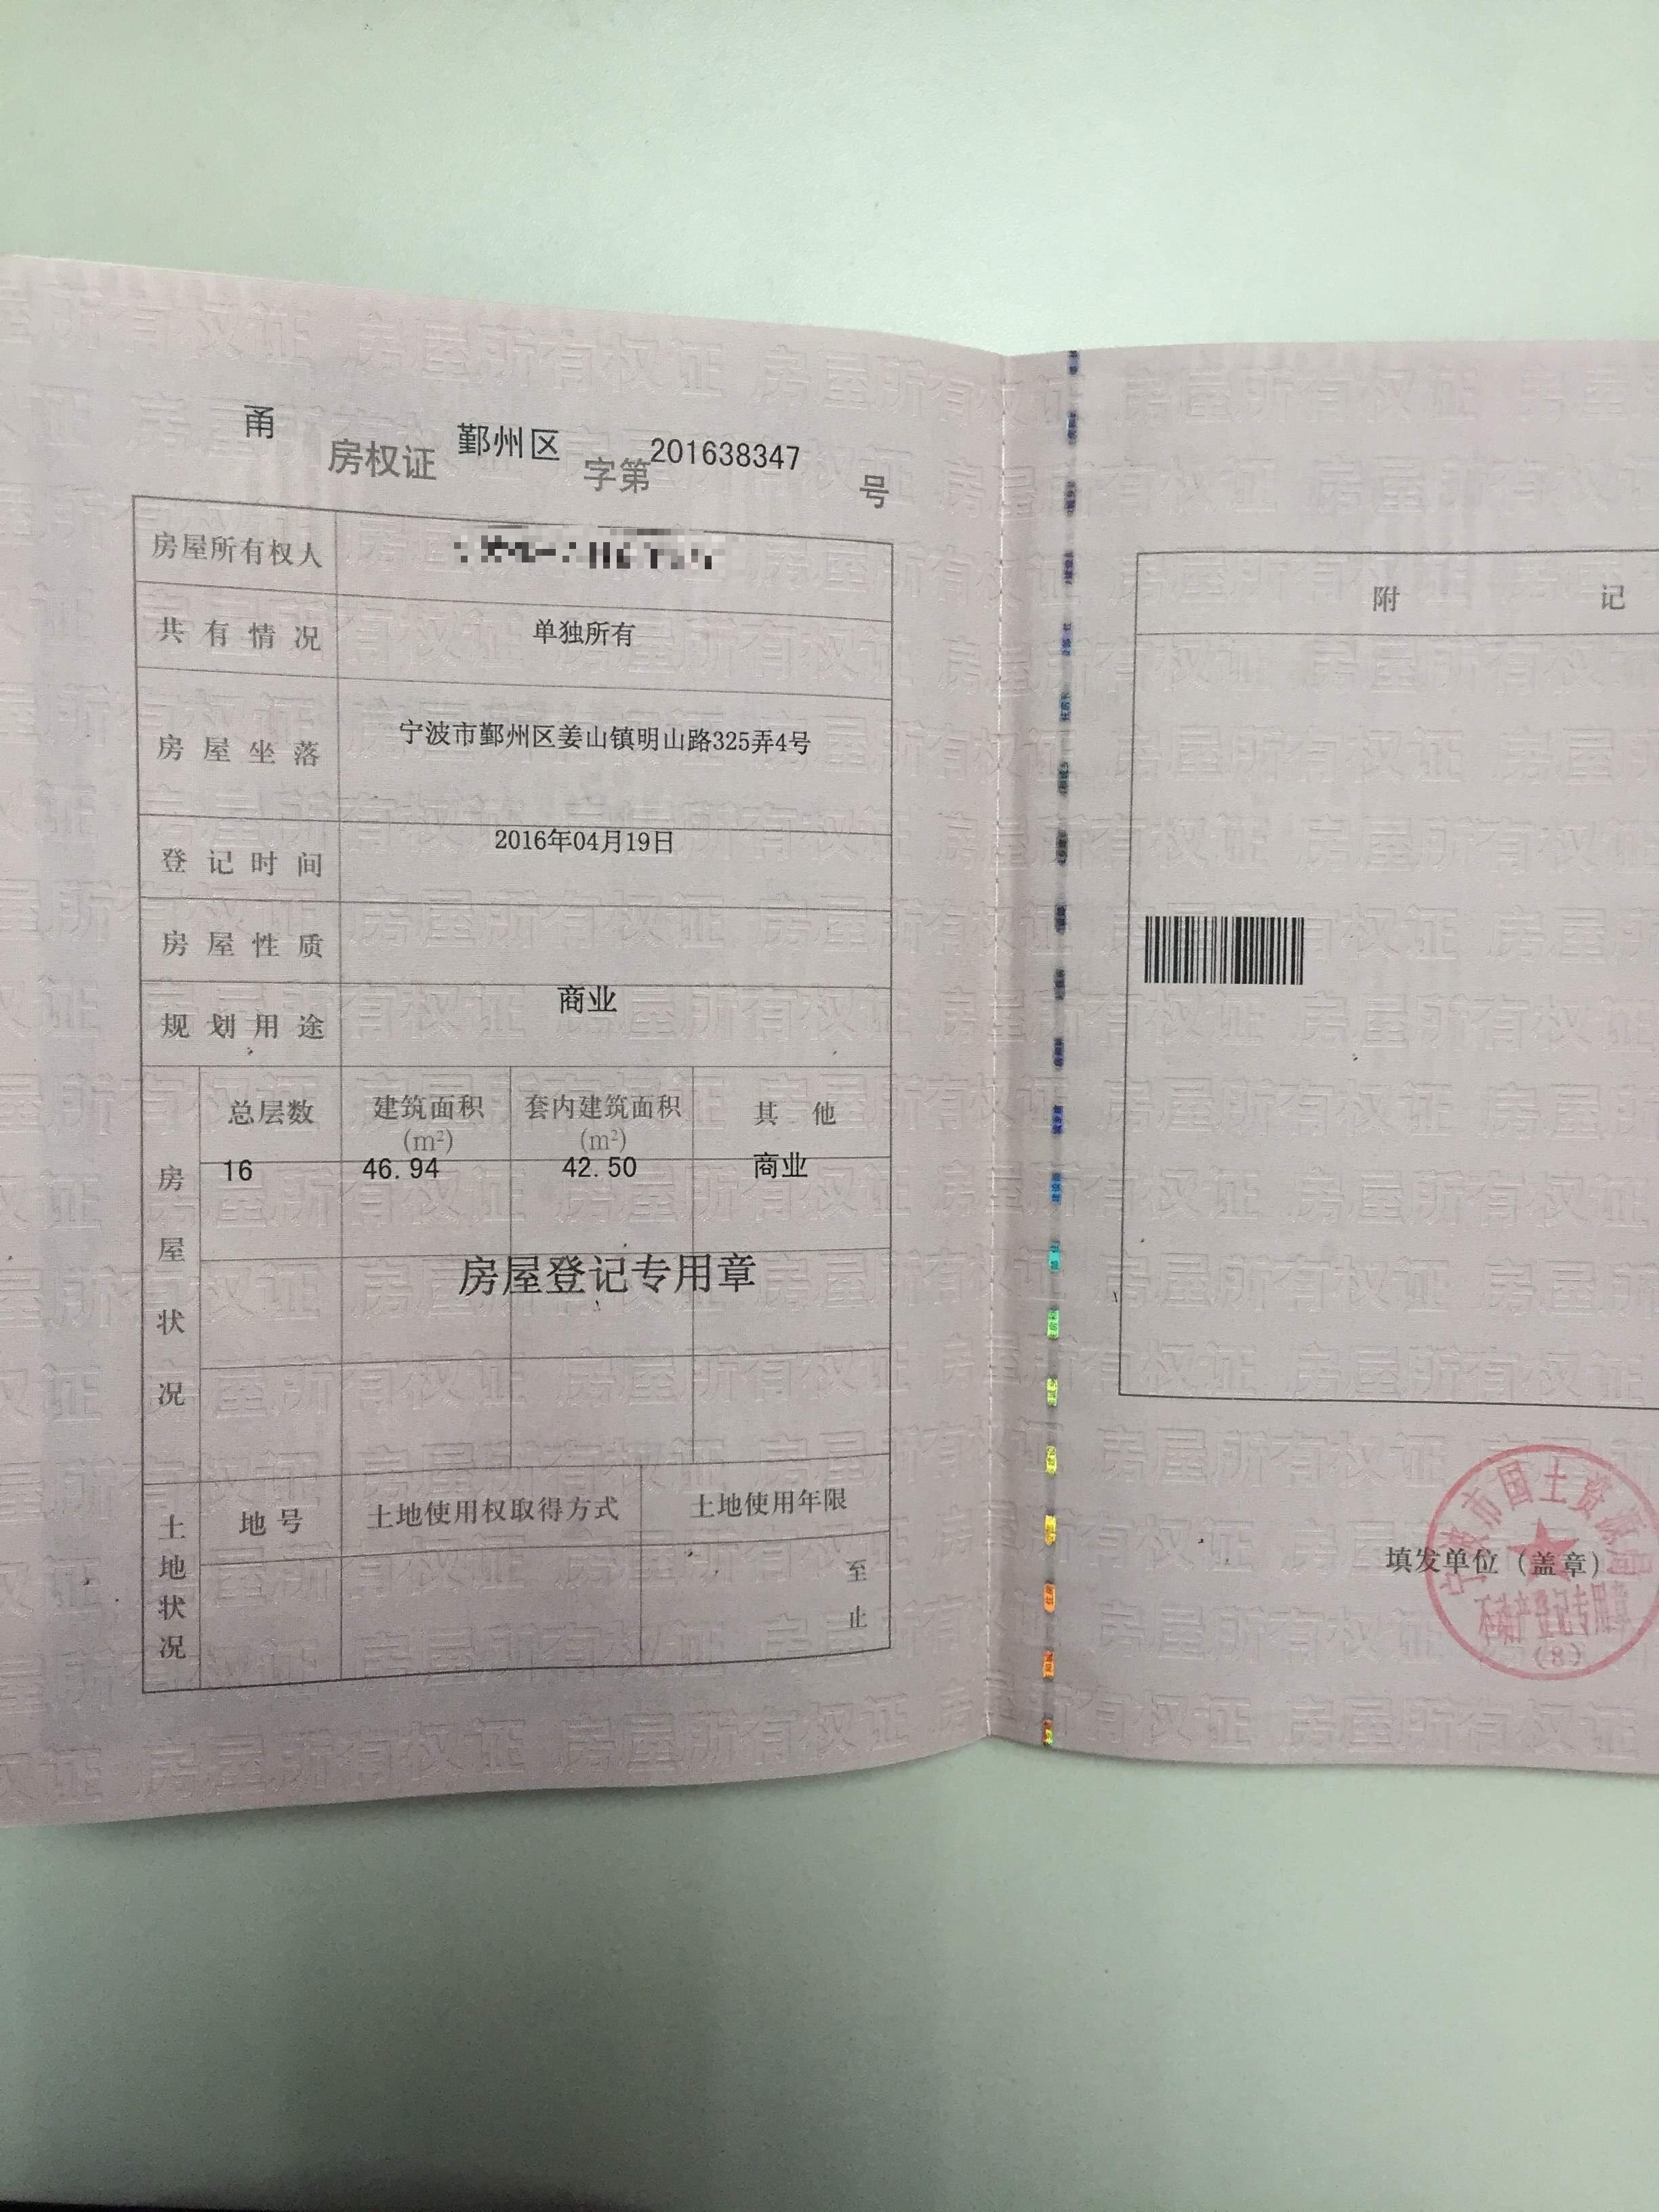 甬 房权证 鄞州区 字第 201638347 号
房屋所有权人
共有情况 单独所有
房屋坐落 宁波市鄞州区姜山镇明山路325弄4号
登记时间 2016年04月19日
房屋性质
规划用途 商业
房屋状况
总层数 建筑面积(m²) 套内建筑面积(m²) 其他
16 46.94 42.50 商业
房屋登记专用章
土地状况
地号 土地使用权取得方式 土地使用年限
至
止
附 记
填发单位（盖章）
宁波市国土资源局
不动产登记专用章
(8)